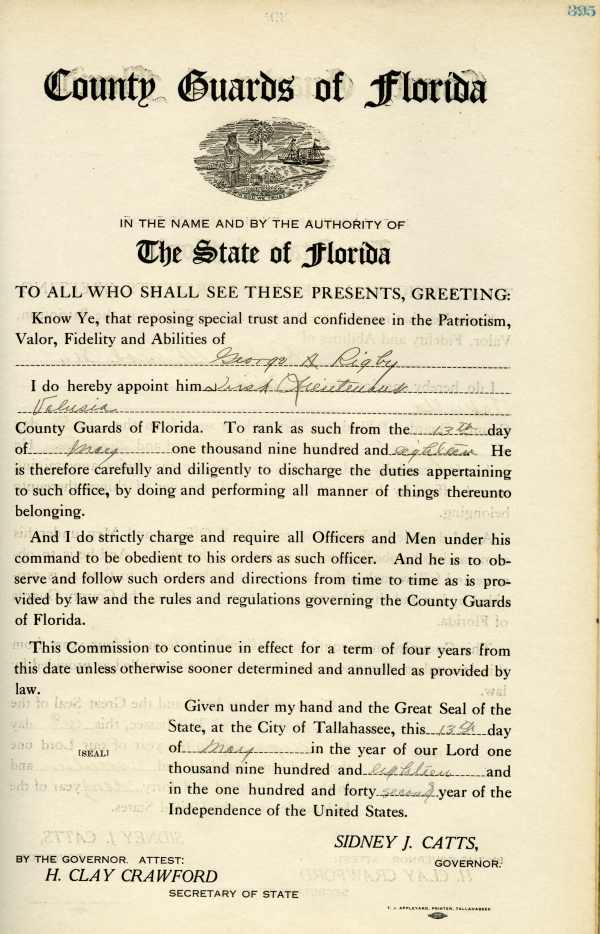 395
County Guards of Florida
IN GOD WE TRUST
IN THE NAME AND BY THE AUTHORITY OF
The State of Florida
TO ALL WHO SHALL SEE THESE PRESENTS, GREETING:
Know Ye, that reposing special trust and confidence in the Patriotism,
Valor, Fidelity and Abilities of
George A Rigby
I do hereby appoint him First Lieutenant
Volusia
County Guards of Florida. To rank as such from the 13th day
of May one thousand nine hundred and eighteen He
is therefore carefully and diligently to discharge the duties appertaining
to such office, by doing and performing all manner of things thereunto
belonging.
And I do strictly charge and require all Officers and Men under his
command to be obedient to his orders as such officer. And he is to ob-
serve and follow such orders and directions from time to time as is pro-
vided by law and the rules and regulations governing the County Guards
of Florida.
This Commission to continue in effect for a term of four years from
this date unless otherwise sooner determined and annulled as provided by
law.
Given under my hand and the Great Seal of the
State, at the City of Tallahassee, this 13th day
[SEAL] of May in the year of our Lord one
thousand nine hundred and eighteen and
in the one hundred and forty second year of the
Independence of the United States.
SIDNEY J. CATTS,
GOVERNOR.
BY THE GOVERNOR. ATTEST:
H. CLAY CRAWFORD
SECRETARY OF STATE
T. J. APPLEYARD, PRINTER, TALLAHASSEE